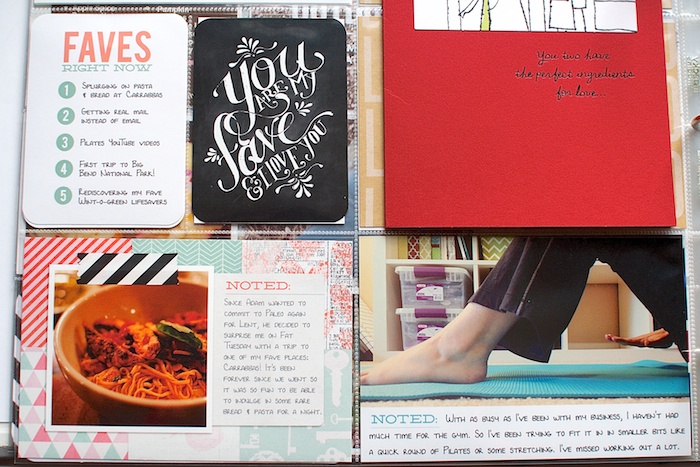 FAVES
RIGHT NOW
1 Splurging on pasta
& bread at Carrabbas
2 Getting real mail
instead of email
3 Pilates YouTube videos
4 First trip to Big
Bend National Park!
5 Rediscovering my fave
Wint-O-Green Lifesavers
You
ARE MY
fave
& I LOVE YOU
You two have
the perfect ingredients
for love...
NOTED:
Since Adam wanted to
commit to Paleo again
for Lent, he decided to
surprise me on Fat
Tuesday with a trip to
one of my fave places:
Carrabbas! It's been
forever since we went so
it was so fun to be able
to indulge in some rare
bread & pasta for a night.
NOTED: With as busy as I've been with my business, I haven't had
much time for the gym. So I've been trying to fit it in in smaller bits like
a quick round of Pilates or some stretching. I've missed working out a lot.